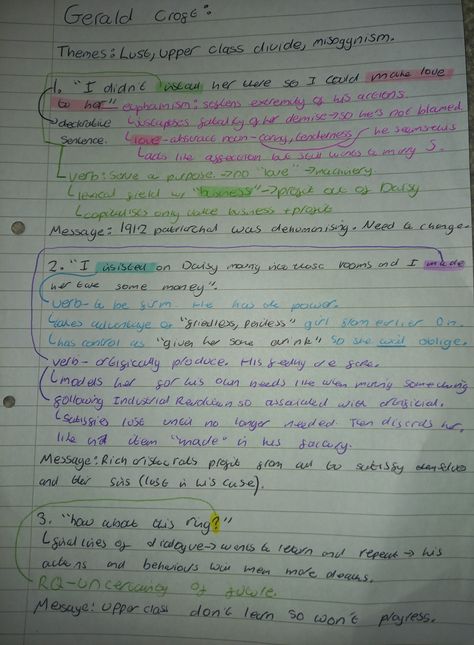 Gerald Croft:
Themes: Lust, upper class divide, misogynism.
1. "I didn't install her there so I could make love
to her" euphamism: softens extremity of his actions.
↳declarative sentence.
↳juxtaposes fatality of her demise→so he's not blamed
↳love - abstract noun - caring, tenderness
↳acts like affection but still wants to marry S.
↳verb: serve a purpose.→no "love"→machinery
↳lexical field w/ "business"→profit out of Daisy
↳capitalises only like business + profit
Message: 1912 patriarchal was dehumanising. Need to change.
2. "I insisted on Daisy moving into those rooms and I made
her take some money".
verb- to be firm. He has the power.
↳takes advantage of "friendless, penniless" girl from earlier on.
↳has control as "given her some drink" so she will oblige.
verb - artificially produce. His feelings are fake.
↳models her for his own needs like when making something
following Industrial Revolution so associated with artificial.
↳Satisfies lust until no longer needed. Then discards her,
like not item "made" in his factory.
Message: Rich aristocrats profit from all to satisfy themselves
and their sins (lust in his case).
3. "how about this ring?"
↳final lines of dialogue→wants to return and repeat→his
actions and behaviours will mean more deaths.
RQ-uncertainty of future.
Message: Upper class don't learn so won't progress.